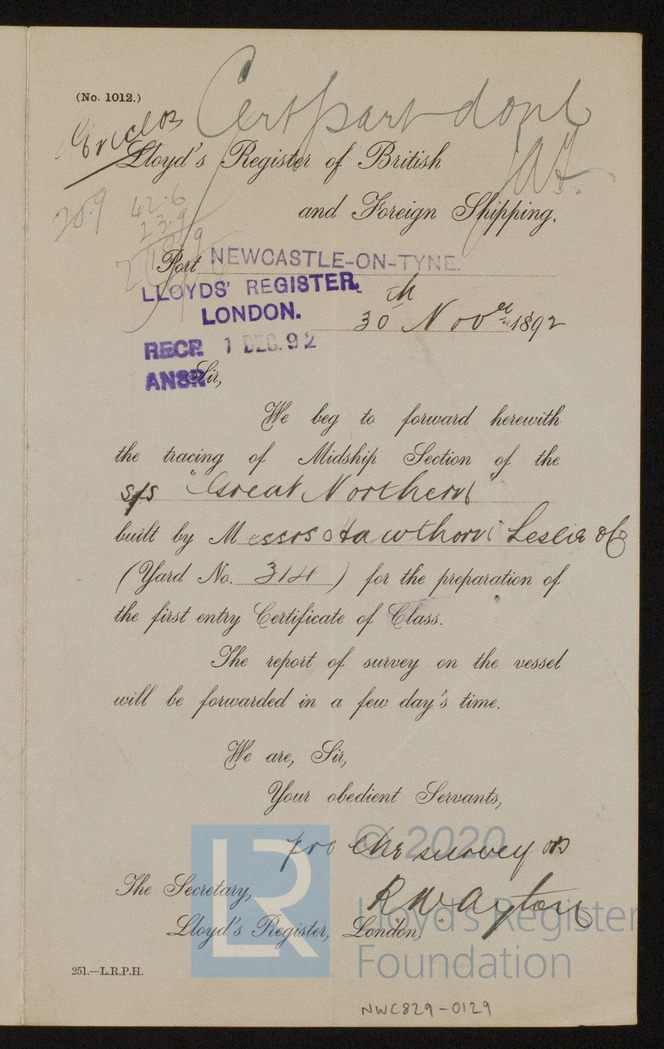 (No. 1012.)
Cert part dont
Lloyd's Register of British
and Foreign Shipping.
20.9
42.6
23.9
Port NEWCASTLE-ON-TYNE.
LLOYDS' REGISTER,
LONDON.
30th Novr 1892
RECD. 1 DEC. 92
ANSR
Sir,
We beg to forward herewith
the tracing of Midship Section of the
s/s "Great Northern"
built by Messrs Hawthorn Leslie & Co
(Yard No. 314) for the preparation of
the first entry Certificate of Class.
The report of survey on the vessel
will be forwarded in a few day's time.
We are, Sir,
Your obedient Servants,
pro the surveyors
R. W. Ayton
The Secretary,
Lloyd's Register, London
251.—L.R.P.H.
LR
© 2020
Lloyd's Register
Foundation
NWC829-0129